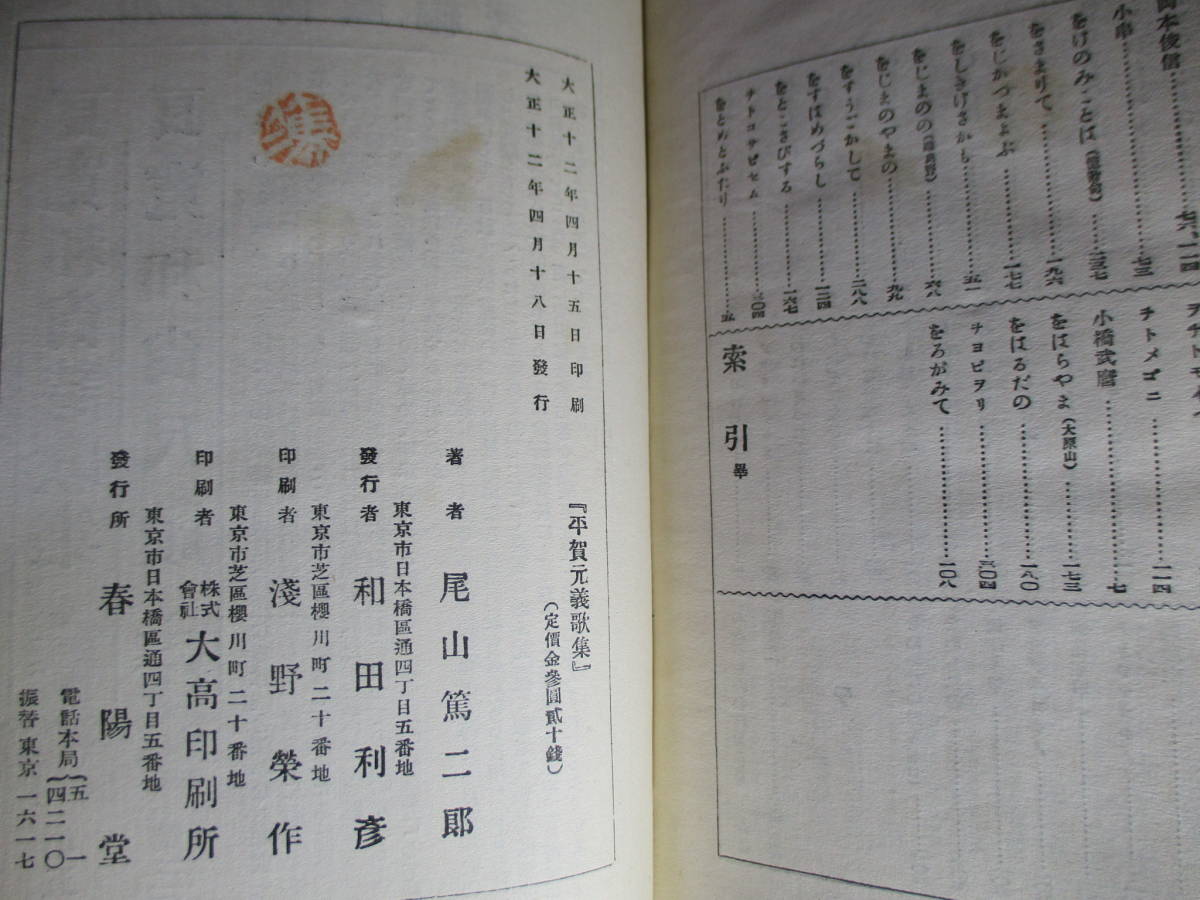 岡本俊信
小串………七三
をさまりて………一九六
をじかつまよぶ………一七七
をしきけさかも………五一
をじまのやまの………九九
をすうごかして………二八八
をすはめづらし………一二四
をとこさびする………一六七
ヲトコサビセム………三〇四
をとめとふたり………五
ヲトメゴニ………一一四
小橋武麿………七
をはらやま(大原山)………一七三
をはるだの………一八〇
ヲヨビヲリ………三〇四
をろがみて………一〇八
索引畢
大正十二年四月十五日印刷
大正十二年四月十八日發行
『平賀元義歌集』
(定價金參圓貳十錢)
著者 尾山篤二郎
東京市日本橋區通四丁目五番地
發行者 和田利彥
東京市芝區櫻川町二十番地
印刷者 淺野榮作
東京市芝區櫻川町二十番地
印刷者 株式會社大高印刷所
東京市日本橋區通四丁目五番地
發行所 春陽堂
電話本局{五一
四二一〇
振替東京一六一七